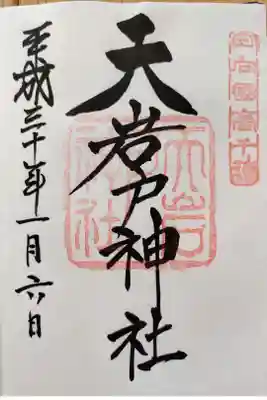 日向国高千穂
天岩戸神社
天岩戸神社
平成三十年一月六日